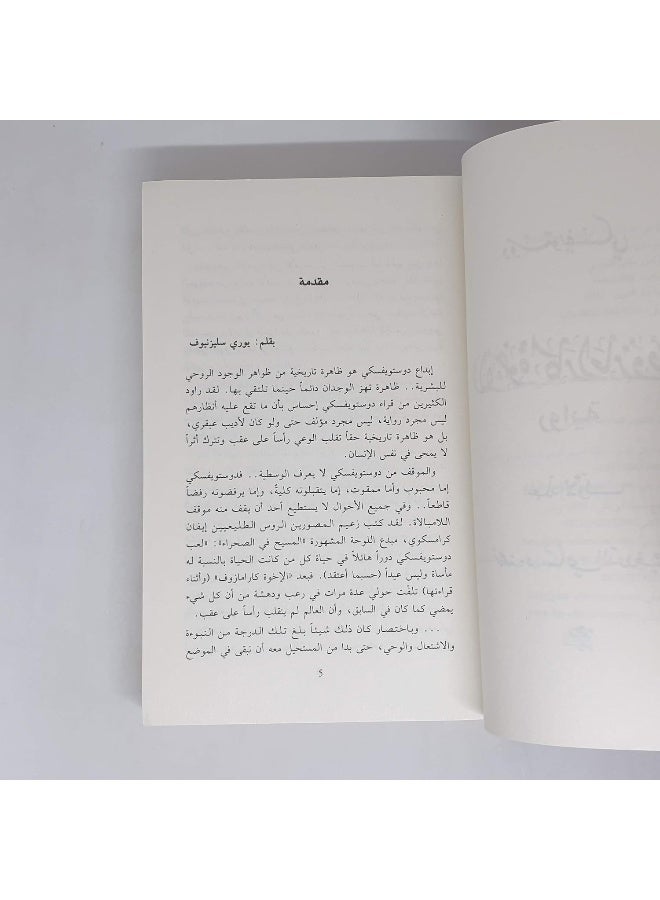 مقدمة
بقلم: يوري سليزنيوف
إبداع دوستويفسكي هو ظاهرة تاريخية من ظواهر الوجود الروحي
للبشرية.. ظاهرة تهز الوجدان دائماً حينما تلتقي بها. لقد راود
الكثيرين من قراء دوستويفسكي إحساس بأن ما تقع عليه أنظارهم
ليس مجرد رواية، ليس مجرد مؤلف حتى ولو كان لأديب عبقري،
بل هو ظاهرة تاريخية حقاً تقلب الوعي رأساً على عقب وتترك أثراً
لا يمحى في نفس الإنسان.
والموقف من دوستويفسكي لا يعرف الوسطية.. فدوستويفسكي
إما محبوب وأما ممقوت، إما يتقبلونه كليةً، وإما يرفضونه رفضاً
قاطعاً.. وفي جميع الأحوال لا يستطيع أحد أن يقف منه موقف
اللامبالاة. لقد كتب زعيم المصورين الروس الطليعيين إيفان
كرامسكوي، مبدع اللوحة المشهورة «المسيح في الصحراء»: «لعب
دوستويفسكي دوراً هائلاً في حياة كل من كانت الحياة بالنسبة له
مأساة وليس عيداً (حسبما أعتقد). فبعد «الإخوة كارامازوف» (وأثناء
قراءتها) تلفّت حولي عدة مرات في رعب ودهشة من أن كل شيء
يمضي كما كان في السابق، وأن العالم لم ينقلب رأساً على عقب.
... وباختصار كان ذلك شيئاً بلغ تلك الدرجة من النبوءة
والاشتعال والوحي، حتى بدا من المستحيل معه أن نبقى في الموضع
5